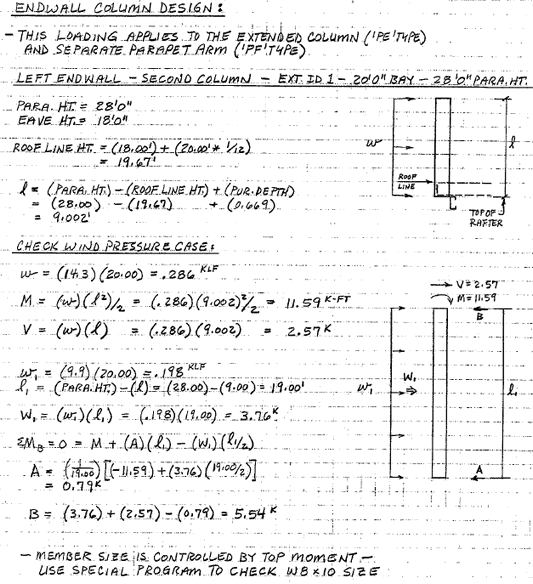 ENDWALL COLUMN DESIGN:
- THIS LOADING APPLIES TO THE EXTENDED COLUMN ('PE'TYPE)
AND SEPARATE PARAPET ARM ('PF'TYPE)
LEFT ENDWALL - SECOND COLUMN - EXT. ID 1 - 20'0" BAY - 28'0" PARA. HT.
PARA. HT = 28'0"
EAVE HT = 18'0"
ROOF LINE HT. = (18.00') + (20.00' * 1/12)
= 19.67'
l = (PARA. HT.) - (ROOF LINE HT) + (PUR. DEPTH)
= (28.00) - (19.67) + (0.669)
= 9.002'
w
l
ROOF
LINE
TOP OF
RAFTER
CHECK WIND PRESSURE CASE:
w = (14.3)(20.00) = .286 KLF
M = (w)(l²)/2 = (.286)(9.002)²/2 = 11.59 K-FT
V = (w)(l) = (.286)(9.002) = 2.57 K
w₁ = (9.9)(20.00) = .198 KLF
l₁ = (PARA. HT.) - (l) = (28.00) - (9.00) = 19.00'
W₁ = (w₁)(l₁) = (.198)(19.00) = 3.76 K
ΣM_B = 0 = M + (A)(l₁) - (W₁)(l₁/2)
A = (1/19.00)[-11.59 + (3.76)(19.00/2)]
= 0.79 K
B = (3.76) + (2.57) - (0.79) = 5.54 K
V = 2.57
M = 11.59
B
w₁
W₁
l₁
A
- MEMBER SIZE IS CONTROLLED BY TOP MOMENT -
USE SPECIAL PROGRAM TO CHECK W8 x 10 SIZE